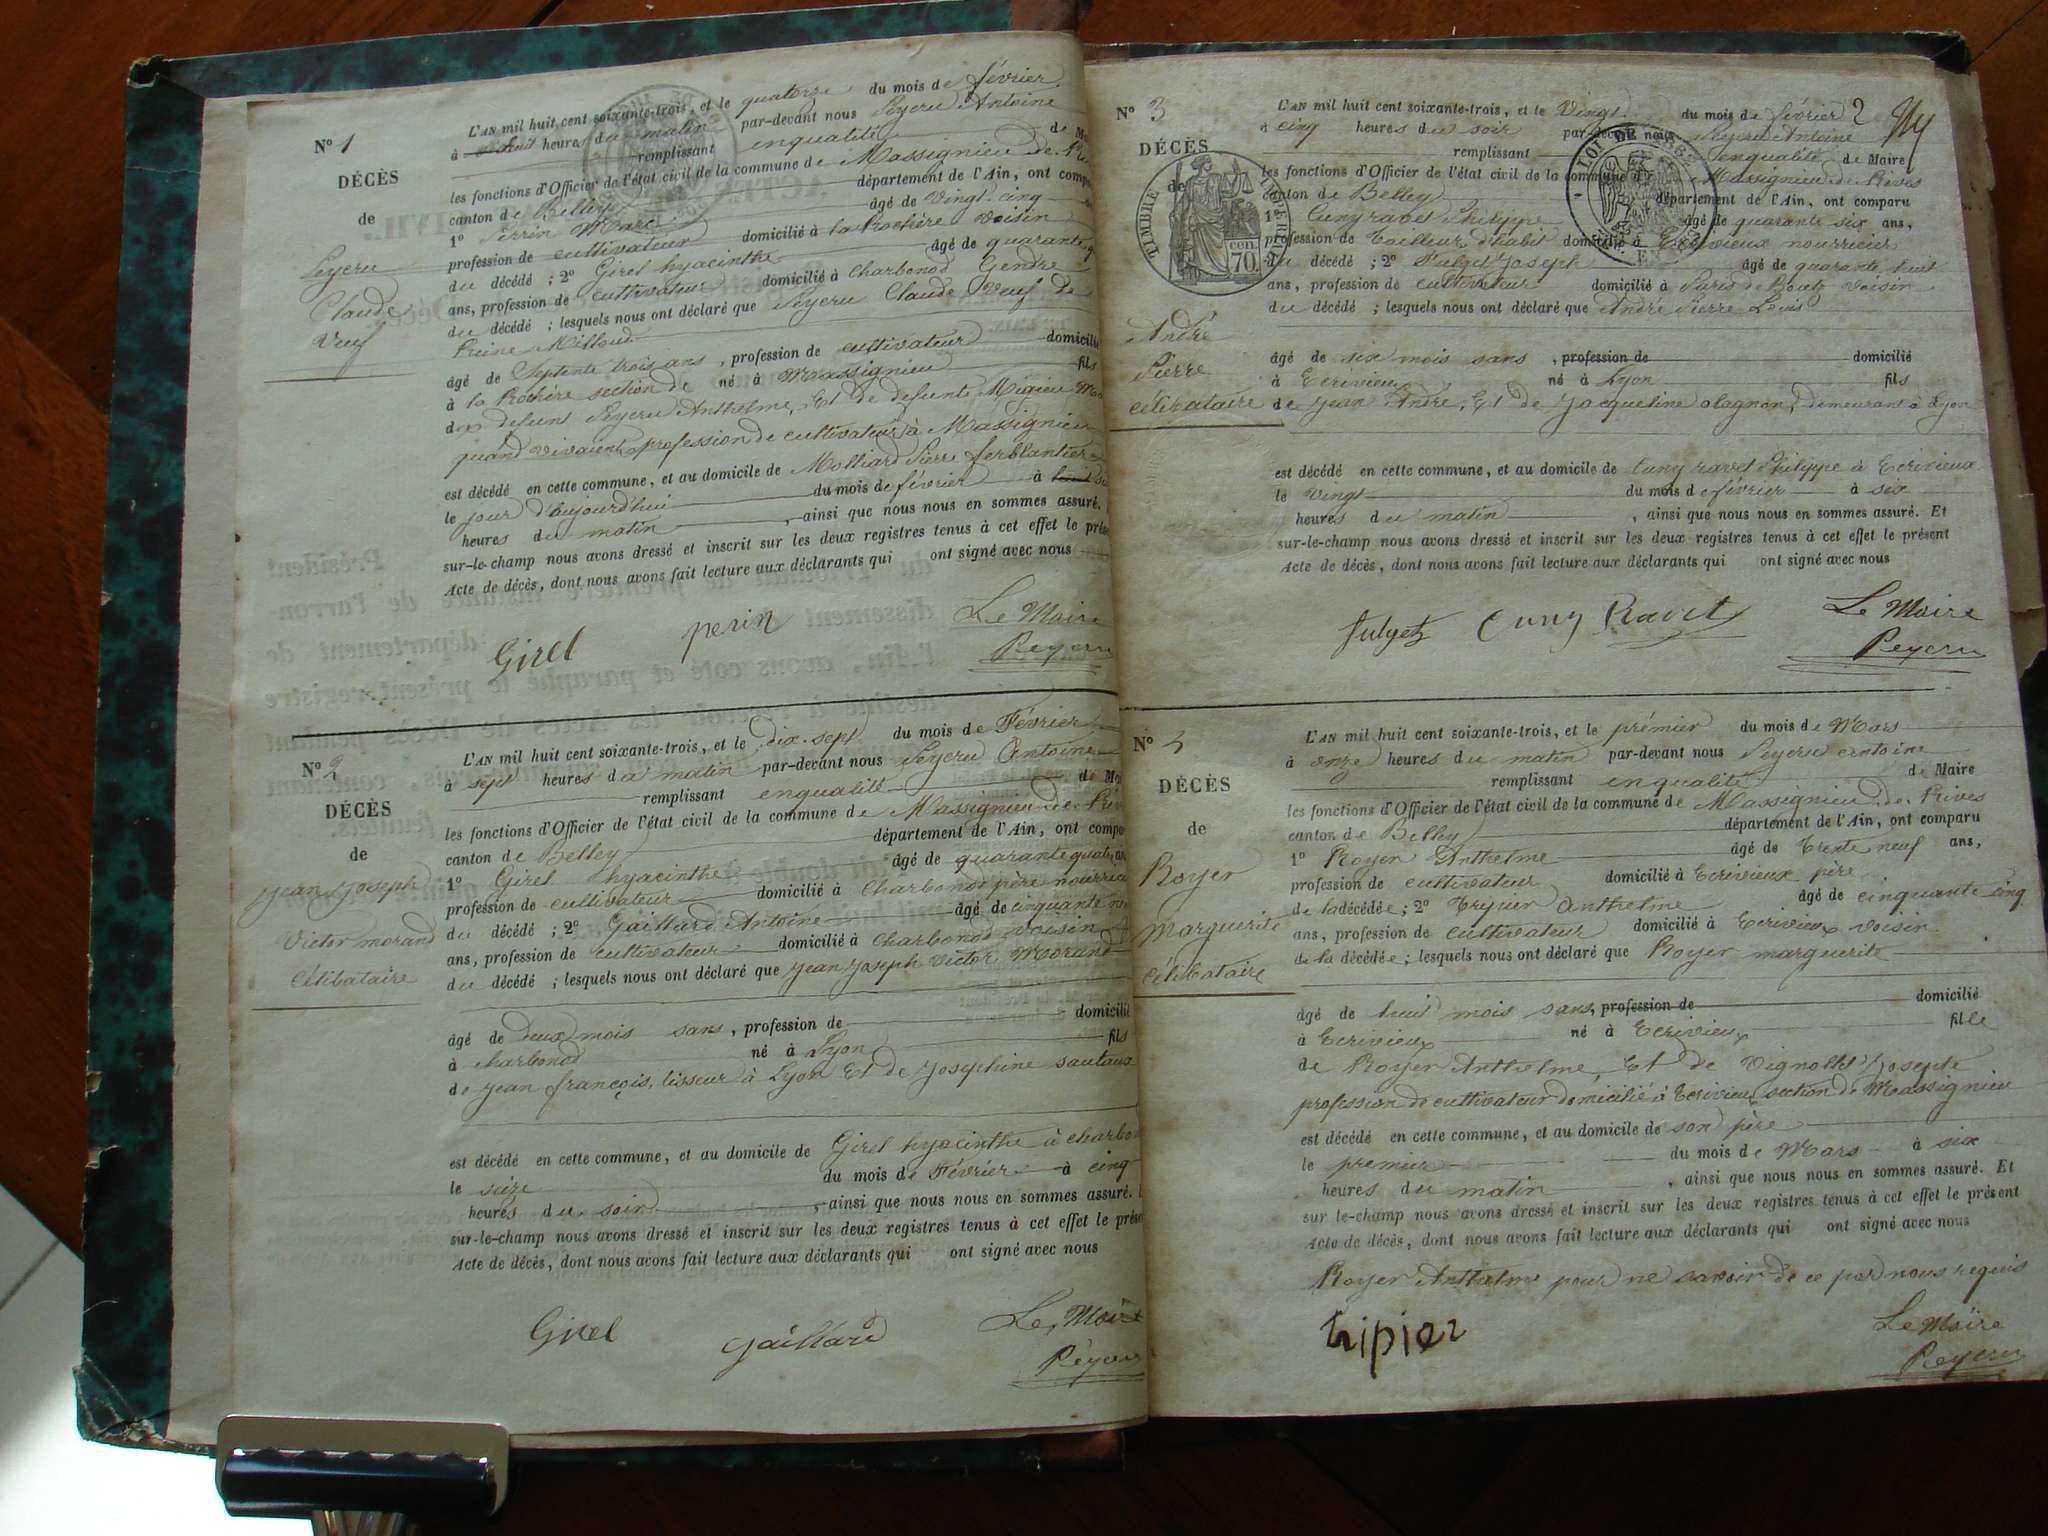 N° 1
DÉCÈS
de
Peyeru
Claude
Veuf
L'AN mil huit cent soixante-trois, et le quatorze du mois de février
à huit heures du matin par-devant nous Peyeru Antoine
remplissant enqualité de
les fonctions d'Officier de l'état civil de la commune de Massignieu de
canton de Belley département de l'Ain, ont
1° Perrin Marc âgé de vingt cinq
profession de cultivateur domicilié à la Rochère voisin
du décédé ; 2° Girel hyacinthe âgé de quarante
ans, profession de cultivateur domicilié à Charbonod Gendre
du décédé ; lesquels nous ont déclaré que Peyeru Claude Veuf de
Reine Milloud
âgé de Septente trois ans , profession de cultivateur domicilié
à la Rochère section de né à Massignieu fils
de defunt Peyeru Anthelme, Et de defunte Migieu
quand vivaient profession de cultivateur à Massignieu
est décédé en cette commune, et au domicile de Molliard Pierre ferblantier
le jour d'aujourd'hui du mois de février à
heures du matin , ainsi que nous nous en sommes assuré.
sur-le-champ nous avons dressé et inscrit sur les deux registres tenus à cet effet le
Acte de décès, dont nous avons fait lecture aux déclarants qui ont signé avec nous
Girel perin Le Maire
Peyeru
N° 2
DÉCÈS
de
Jean Joseph
Victor morand
Célibataire
L'AN mil huit cent soixante-trois, et le dix-sept du mois de Février
à sept heures du matin par-devant nous Peyeru Antoine
remplissant enqualité de
les fonctions d'Officier de l'état civil de la commune de Massignieu de
canton de Belley département de l'Ain, ont
1° Girel hyacinthe âgé de quarante quatre
profession de cultivateur domicilié à Charbonod père nourricier
du décédé ; 2° Gaillard Antoine âgé de cinquante
ans, profession de cultivateur domicilié à Charbonod voisin
du décédé ; lesquels nous ont déclaré que Jean Joseph Victor Morand
âgé de deux mois sans , profession de domicilié
à charbonod né à Lyon fils
de Jean françois, tisseur à Lyon Et de Josephine sautaux
est décédé en cette commune, et au domicile de Girel hyacinthe à
le seize du mois de Février à cinq
heures du soir , ainsi que nous nous en sommes assuré.
sur-le-champ nous avons dressé et inscrit sur les deux registres tenus à cet effet le
Acte de décès, dont nous avons fait lecture aux déclarants qui ont signé avec nous
Girel gaillard Le Maire
Peyeru
N° 3
DÉCÈS
de
TIMBRE IMPÉRIAL
70 cen.
LOI DE 1862
André
Pierre
célibataire
2
L'AN mil huit cent soixante-trois, et le Vingt du mois de février
à cinq heures du soir par-devant nous Peyeru Antoine
remplissant enqualité de Maire
les fonctions d'Officier de l'état civil de la commune de Massignieu de Rives
canton de Belley département de l'Ain, ont comparu
1° Cuny ravet Philippe âgé de quarante six ans,
profession de Tailleur d'habit domicilié à Ecrivieux nourricier
du décédé ; 2° Joseph âgé de quarante huit
ans, profession de cultivateur domicilié à voisin
du décédé ; lesquels nous ont déclaré que André Pierre Louis
âgé de six mois sans , profession de domicilié
à Ecrivieux né à Lyon fils
de Jean André, Et de Jacqueline olagnon, demeurant à Lyon
est décédé en cette commune, et au domicile de Cuny ravet Philippe à Ecrivieux
le vingt du mois de février à six
heures du matin , ainsi que nous nous en sommes assuré. Et
sur-le-champ nous avons dressé et inscrit sur les deux registres tenus à cet effet le présent
Acte de décès, dont nous avons fait lecture aux déclarants qui ont signé avec nous
Cuny Ravet Le Maire
Peyeru
N°
DÉCÈS
de
Royer
Marguerite
célibataire
L'AN mil huit cent soixante-trois, et le prémier du mois de Mars
à onze heures du matin par-devant nous Peyeru antoine
remplissant enqualité de Maire
les fonctions d'Officier de l'état civil de la commune de Massignieu de Rives
canton de Belley département de l'Ain, ont comparu
1° Royer Anthelme âgé de trente neuf ans,
profession de cultivateur domicilié à Ecrivieux père
de la décédée ; 2° anthelme âgé de cinquante cinq
ans, profession de cultivateur domicilié à Ecrivieux voisin
de la décédée ; lesquels nous ont déclaré que Royer marguerite
âgé de huit mois sans, profession de domicilié
à Ecrivieux né à Ecrivieux fille
de Royer Anthelme, Et de Josepte
profession de cultivateur domicilié à Ecrivieux section de Massignieu
est décédé en cette commune, et au domicile de son père
le premier du mois de Mars à six
heures du matin , ainsi que nous nous en sommes assuré. Et
sur le-champ nous avons dressé et inscrit sur les deux registres tenus à cet effet le présent
Acte de décès, dont nous avons fait lecture aux déclarants qui ont signé avec nous
Royer Anthelme pour ne savoir de ce par nous requis
tripier Le Maire
Peyeru